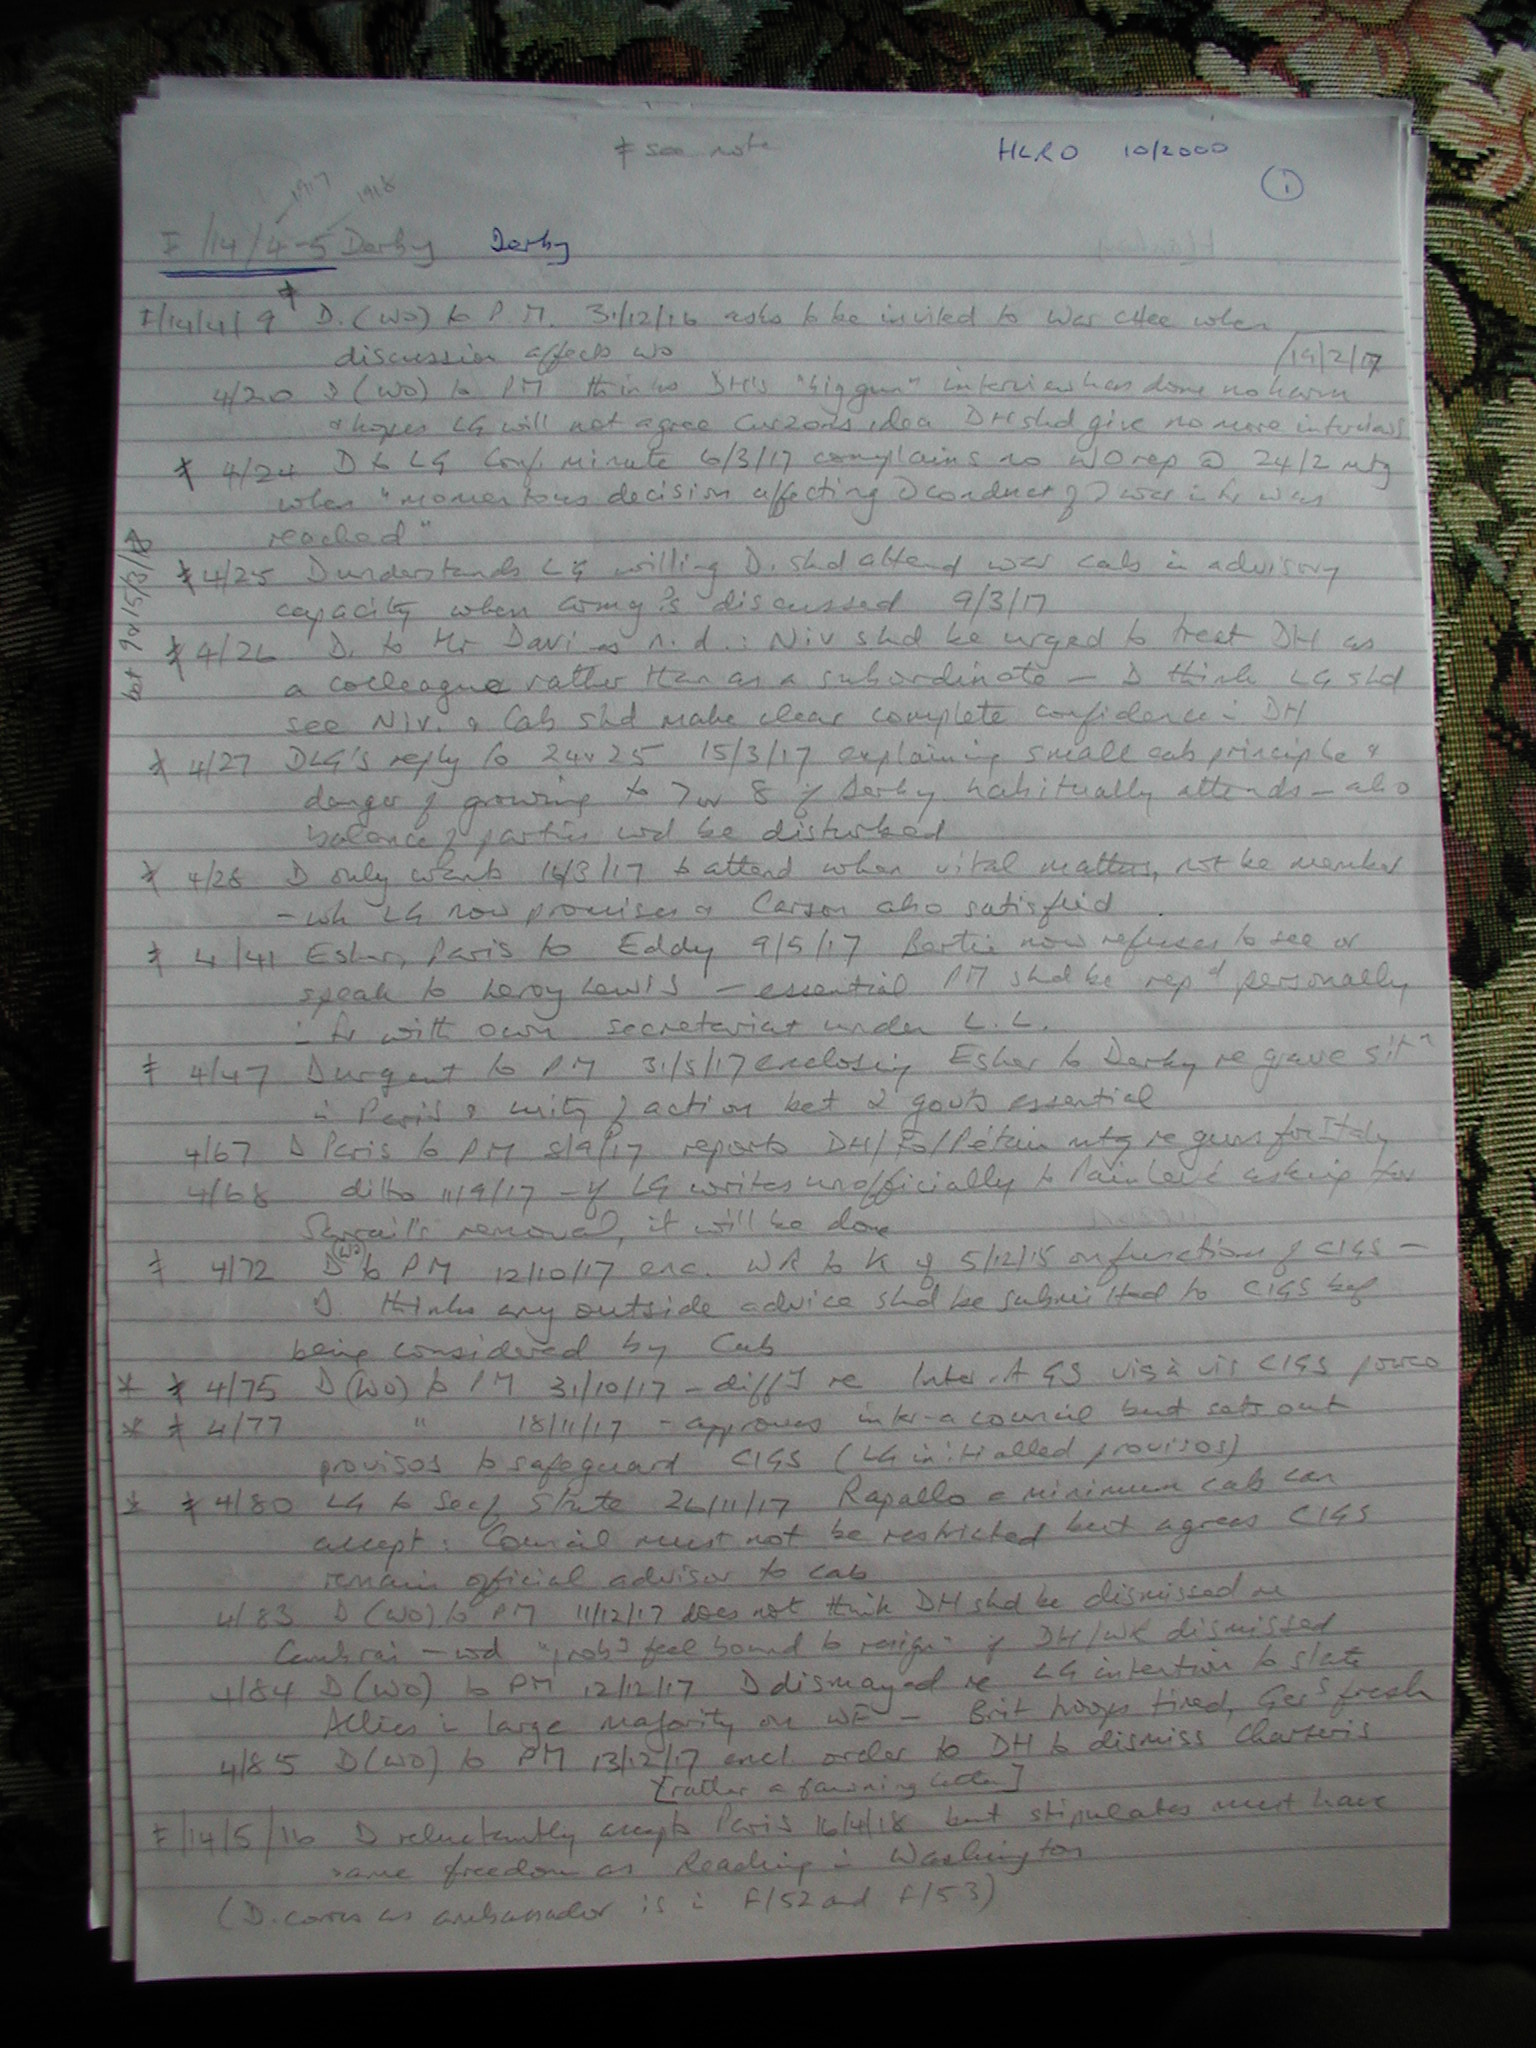 ≠ see note HLRO 10/2000
1
1917 1918
F/14/4-5 Derby Derby
≠
F/14/4/9 D. (WO) to P.M. 31/12/16 asks to be invited to War Cttee when
discussion affects WO
19/2/17
4/20 D (WO) to PM thinks DH's "big gun" interview has done no harm
& hopes LG will not agree Curzons idea DH shd give no more interviews
≠ 4/24 D to LG Conf. minute 6/3/17 complains no WO rep @ 24/2 mtg
when "momentous decision affecting conduct of war in Fr was
reached"
≠ 4/25 D understands LG willing D. shd attend war cab in advisory
capacity when army ?s discussed 9/3/17
bet 9 & 15/3/17
≠ 4/26 D. to Mr Davies n.d.: Niv shd be urged to treat DH as
a colleague rather than as a subordinate – D think LG shd
see Niv. & Cab shd make clear complete confidence in DH
≠ 4/27 DLG's reply to 24 & 25 15/3/17 explaining small cab principle &
danger of growing to 7 or 8 if Derby habitually attends – also
balance of parties wd be disturbed
≠ 4/28 D only wants 16/3/17 to attend when vital matters, not be member
– wh LG now promises & Carson also satisfied
≠ 4/41 Esher, Paris to Eddy 9/5/17 Bertie now refuses to see or
speak to Leroy Lewis – essential PM shd be repd personally
in Fr with own secretariat under L.L.
≠ 4/47 D urgent to PM 31/5/17 enclosing Esher to Derby re grave sitn
in Paris & unity of action bet 2 govts essential
4/67 D Paris to PM 8/9/17 reports DH/Fo/Pétain mtg re guns for Italy
4/68 ditto 11/9/17 – if LG writes unofficially to Painlevé asking for
Sarrail's removal, it will be done
≠ 4/72 D (WO) to PM 12/10/17 enc. WR to K of 5/12/15 on functions of CIGS –
D. thinks any outside advice shd be submitted to CIGS bef
being considered by Cab
* ≠ 4/75 D (WO) to PM 31/10/17 – re Inter-A GS vis à vis CIGS powers
* ≠ 4/77 " 18/11/17 – approves inter-a council but sets out
provisos to safeguard CIGS (LG initialled provisos)
* ≠ 4/80 LG to Sec of State 26/11/17 Rapallo = minimum cab can
accept: Council must not be restricted but agrees CIGS
remain official advisor to cab
4/83 D (WO) to PM 11/12/17 does not think DH shd be dismissed re
Cambrai – wd "prob feel bound to resign" if DH/WR dismissed
4/84 D (WO) to PM 12/12/17 D dismayed re LG intention to state
Allies in large majority on WF – Brit troops tired, Gers fresh
4/85 D (WO) to PM 13/12/17 encl. order to DH to dismiss Charteris
[rather a fawning letter]
F/14/5/16 D reluctantly accepts Paris 16/4/18 but stipulates must have
same freedom as Reading in Washington
(D. corres as ambassador is in F/52 and F/53)